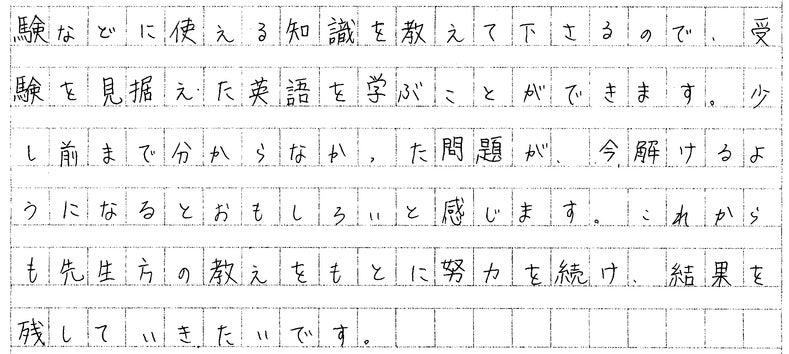 験などに使える知識を教えて下さるので、受
験を見据えた英語を学ぶことができます。少
し前まで分からなかった問題が、今解けるよ
うになるとおもしろいと感じます。これから
も先生方の教えをもとに努力を続け、結果を
残していきたいです。